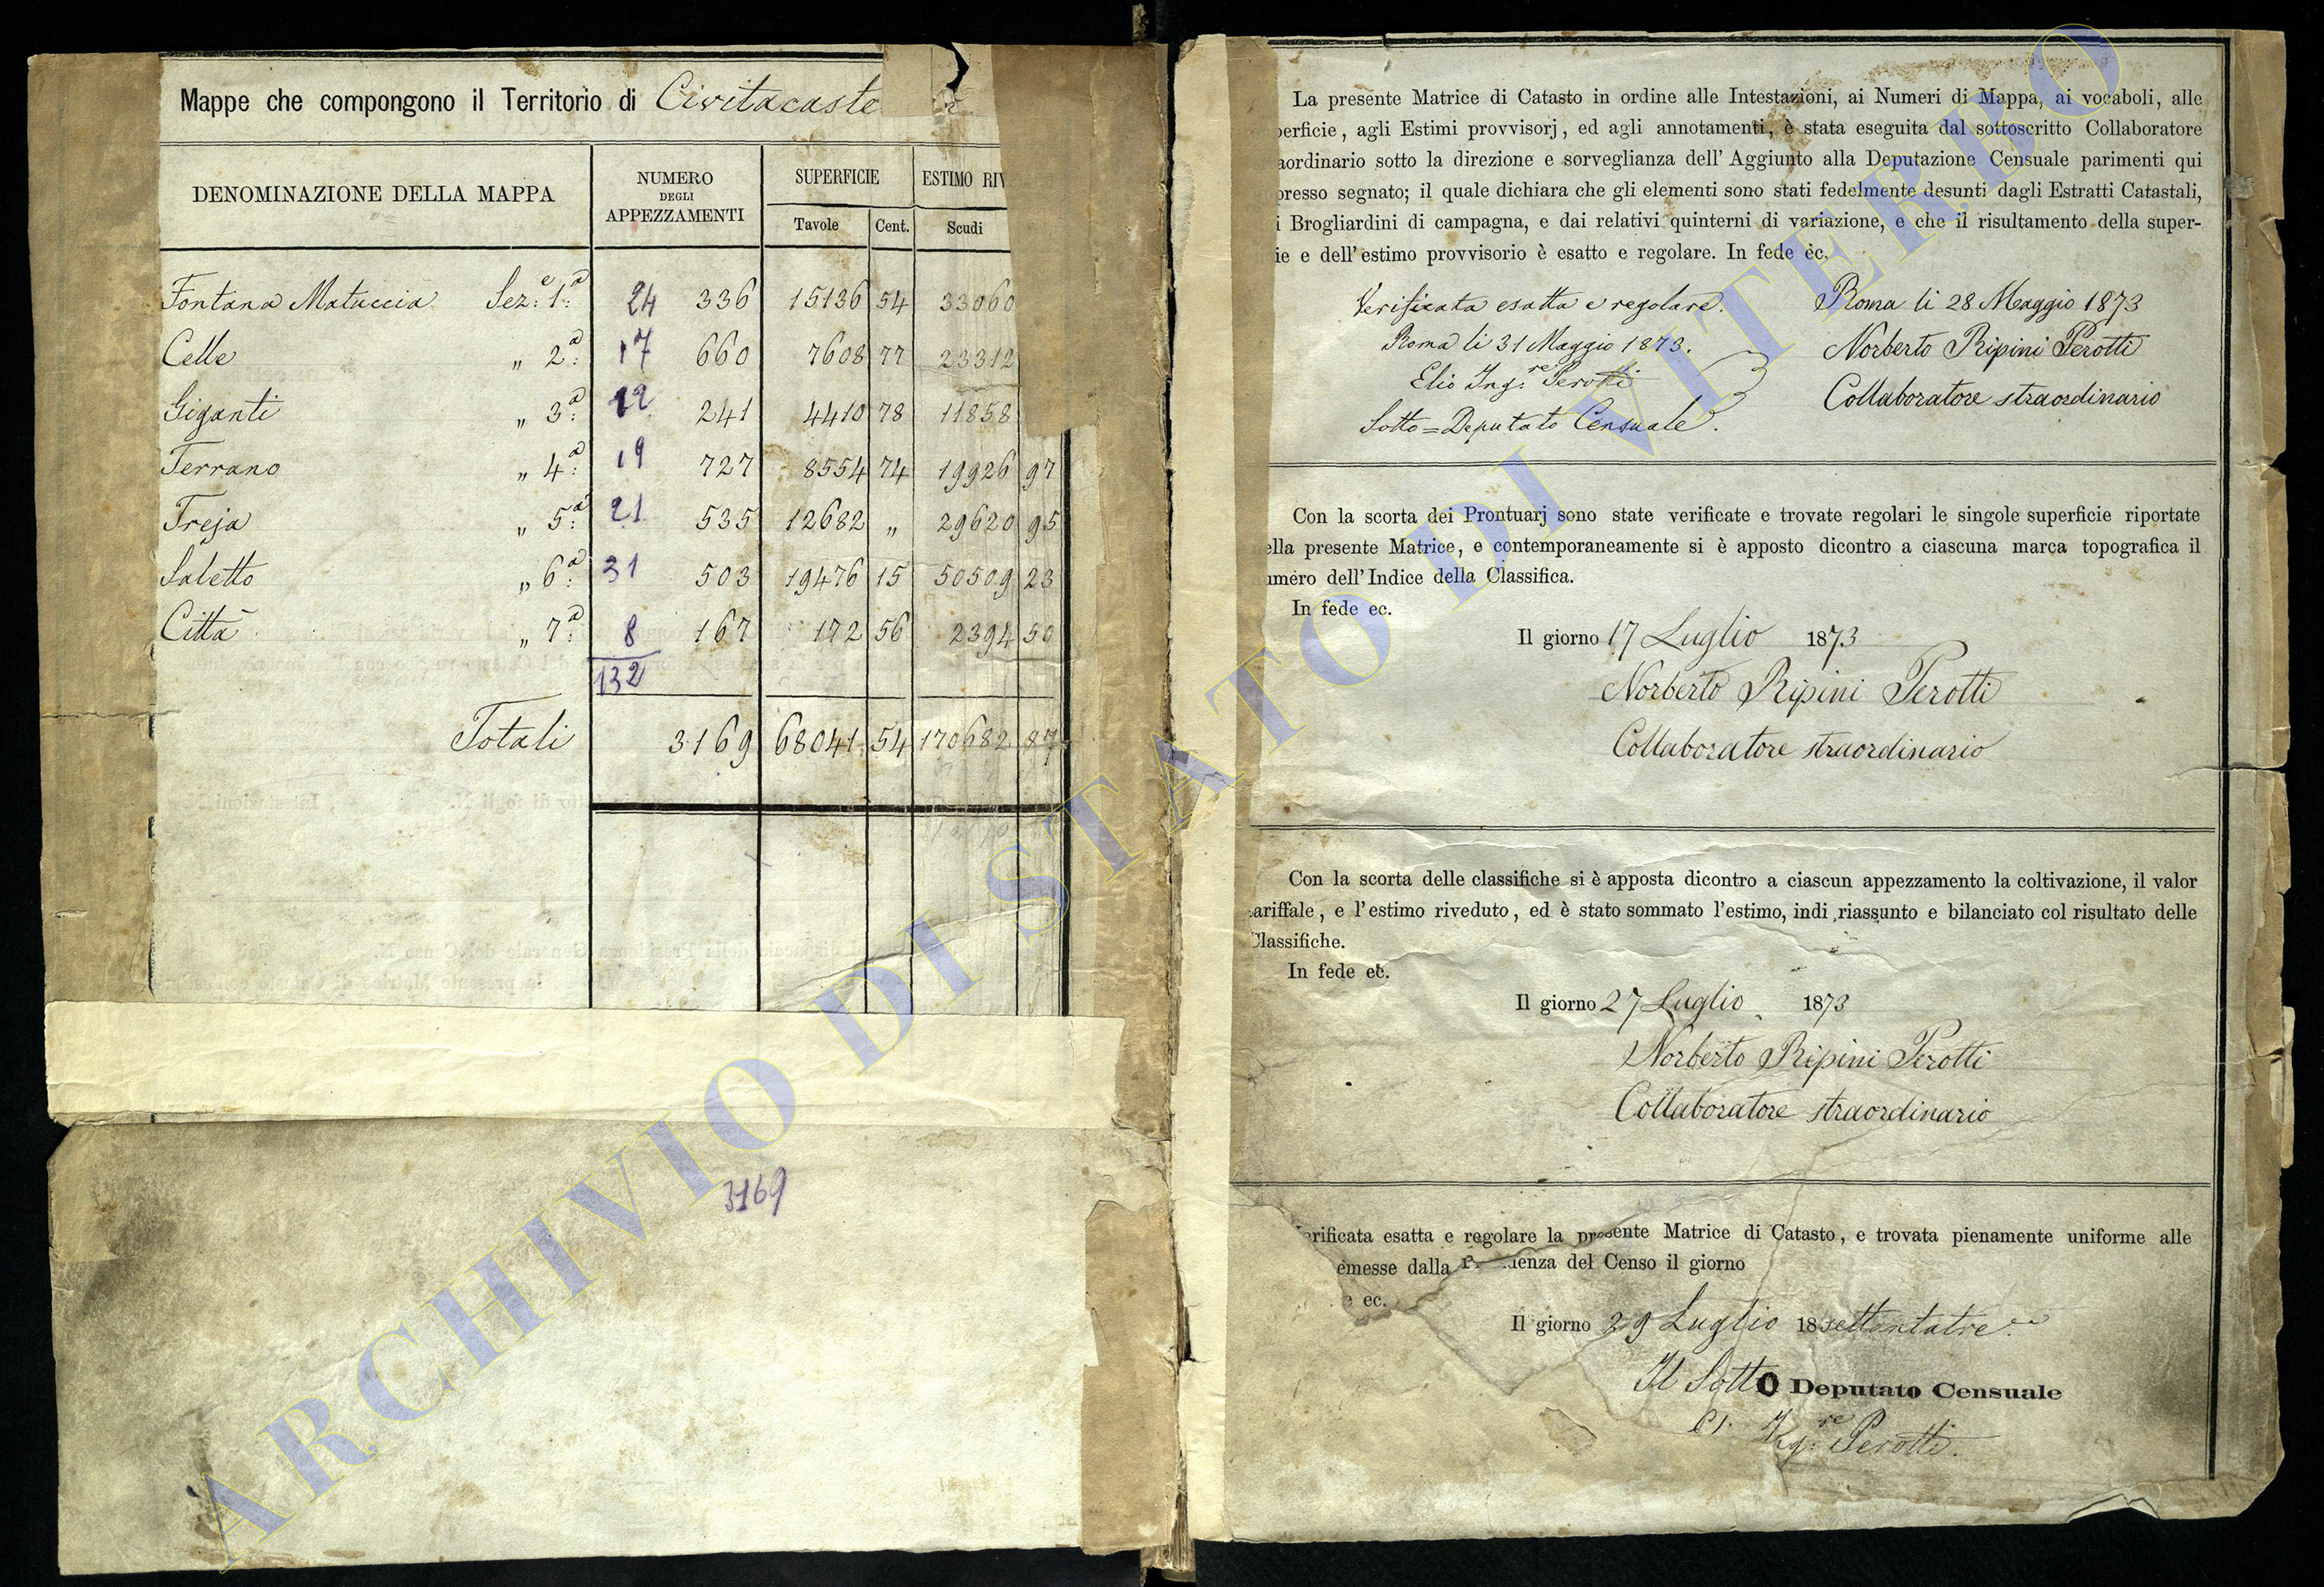 Mappe che compongono il Territorio di Civitacaste
DENOMINAZIONE DELLA MAPPA NUMERO DEGLI APPEZZAMENTI SUPERFICIE ESTIMO RIV
Tavole Cent. Scudi
Fontana Matuccia Sez:e 1:a 24 336 15136 54 33060
Celle " 2:a 17 660 7608 77 23312
Giganti " 3:a 12 241 4410 78 11858
Terrano " 4:a 19 727 8554 74 19926 97
Treja " 5:a 21 535 12682 " 29620 95
Saletto " 6:a 31 503 19476 15 50509 23
Città " 7:a 8 167 172 56 2394 50
132
Totali 3169 68041 54 170682 87
3169
La presente Matrice di Catasto in ordine alle Intestazioni, ai Numeri di Mappa, ai vocaboli, alle
erficie, agli Estimi provvisorj, ed agli annotamenti, è stata eseguita dal sottoscritto Collaboratore
aordinario sotto la direzione e sorveglianza dell' Aggiunto alla Deputazione Censuale parimenti qui
presso segnato; il quale dichiara che gli elementi sono stati fedelmente desunti dagli Estratti Catastali,
i Brogliardini di campagna, e dai relativi quinterni di variazione, e che il risultamento della super-
ie e dell' estimo provvisorio è esatto e regolare. In fede ec.
Verificata esatta e regolare.
Roma li 31 Maggio 1873.
Elio Ing:re Perotti
Sotto=Deputato Censuale.
Roma li 28 Maggio 1873
Norberto Ripini Perotti
Collaboratore straordinario
Con la scorta dei Prontuarj sono state verificate e trovate regolari le singole superficie riportate
ella presente Matrice, e contemporaneamente si è apposto dicontro a ciascuna marca topografica il
umero dell' Indice della Classifica.
In fede ec.
Il giorno 17 Luglio 1873
Norberto Ripini Perotti
Collaboratore straordinario
Con la scorta delle classifiche si è apposta dicontro a ciascun appezzamento la coltivazione, il valor
ariffale, e l'estimo riveduto, ed è stato sommato l'estimo, indi riassunto e bilanciato col risultato delle
Classifiche.
In fede ec.
Il giorno 27 Luglio 1873
Norberto Ripini Perotti
Collaboratore straordinario
erificata esatta e regolare la presente Matrice di Catasto, e trovata pienamente uniforme alle
emesse dalla denza del Censo il giorno
e ec.
Il giorno 29 Luglio 18settantatre
Il Sotto Deputato Censuale
Ing:re Perotti.
ARCHIVIO DI STATO DI VITERBO